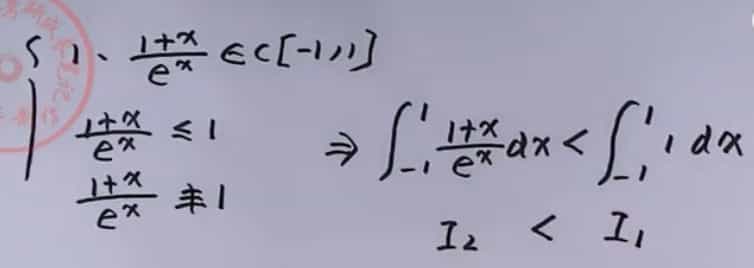 1、(1+x)/e^x ∈ C[-1,1]
(1+x)/e^x ≤ 1
(1+x)/e^x ≢ 1
⇒ ∫_{-1}^{1} (1+x)/e^x dx < ∫_{-1}^{1} 1 dx
I₂ < I₁